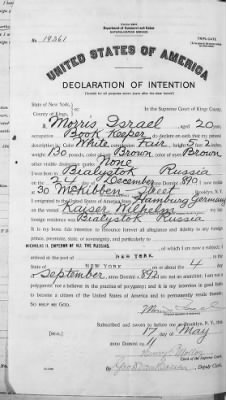 Department of Commerce and Labor
NATURALIZATION SERVICE
No. 19361
TRIPLICATE
UNITED STATES OF AMERICA
DECLARATION OF INTENTION
State of New York,
County of Kings,
In the Supreme Court of Kings County.
I, Morris Israel, aged 20 years,
occupation Book Keeper, do declare on oath that my personal
description is: Color White, complexion Fair, height 5 feet 2 inches,
weight 130 pounds, color of hair Brown, color of eyes Brown
other visible distinctive marks None
I was born in Bialystok Russia
on the 24 day of December, anno Domini 1890; I now reside
at 30 McKibben Street, Brooklyn, N.Y.
I emigrated to the United States of America from Hamburg Germany
on the vessel Kaiser Wilhelm; my last
foreign residence was Bialystok Russia
It is my bona fide intention to renounce forever all allegiance and fidelity to any foreign
prince, potentate, state, or sovereignty, and particularly to
NICHOLAS II, EMPEROR OF ALL THE RUSSIAS, of which I am now a subject; I
arrived at the port of NEW YORK, in the
State of NEW YORK on or about the 4 day
of September, anno Domini 1892; I am not an anarchist; I am not a
polygamist nor a believer in the practice of polygamy; and it is my intention in good faith
to become a citizen of the United States of America and to permanently reside therein.
SO HELP ME GOD.
Subscribed and sworn to before me at Brooklyn, N.Y., this
17 day of May
anno Domini 1911
Clerk of the Supreme Court.
Deputy Clerk.